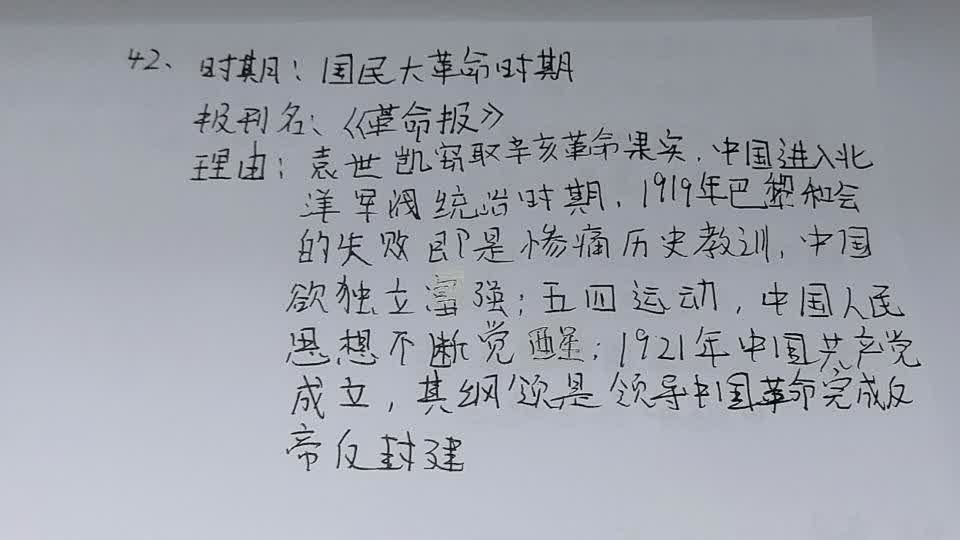 42、时期：国民大革命时期
报刊名：《革命报》
理由：袁世凯窃取辛亥革命果实，中国进入北
洋军阀统治时期，1919年巴黎和会
的失败即是惨痛历史教训，中国
欲独立富强；五四运动，中国人民
思想不断觉醒；1921年中国共产党
成立，其纲领是领导中国革命完成反
帝反封建